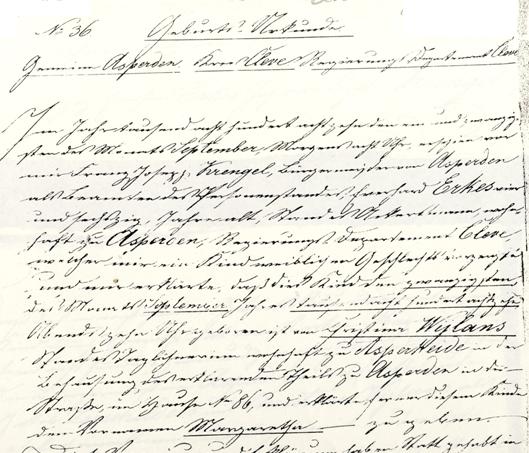 No 36 Geburts-Urkunde.
Gemeine Asperden Kreis Cleve Regierungs Departement Cleve
Im Jahr tausend acht hundert acht zehn den ein und zwanzig-
sten des Monats September, Morgens acht Uhr, erschien vor
mir Franz Joseph Krengel, Bürgermeister von Asperden
als Beamten des Personenstandes, Everhard Erkes vier
und sechszig Jahre alt, Standes Ackersmann, wohn-
haft zu Asperden, Regierungs Departement Cleve,
welcher mir ein Kind weiblichen Geschlechts vorzeigte
und mir erklärte, daß dies Kind den zwanzigsten
des Monats September Jahres tausend acht hundert acht zehn
Abends zehn Uhr geboren ist von Christina Weylans
Standes Taglöhnerinn wohnhaft zu Asperheide in der
Behausung des erklärenden Theils zu Asperden in der
Straße, im Hause No 86, und erklärte ferner diesem Kinde
den Vornamen Margaretha zu geben.
haben Statt gehabt in